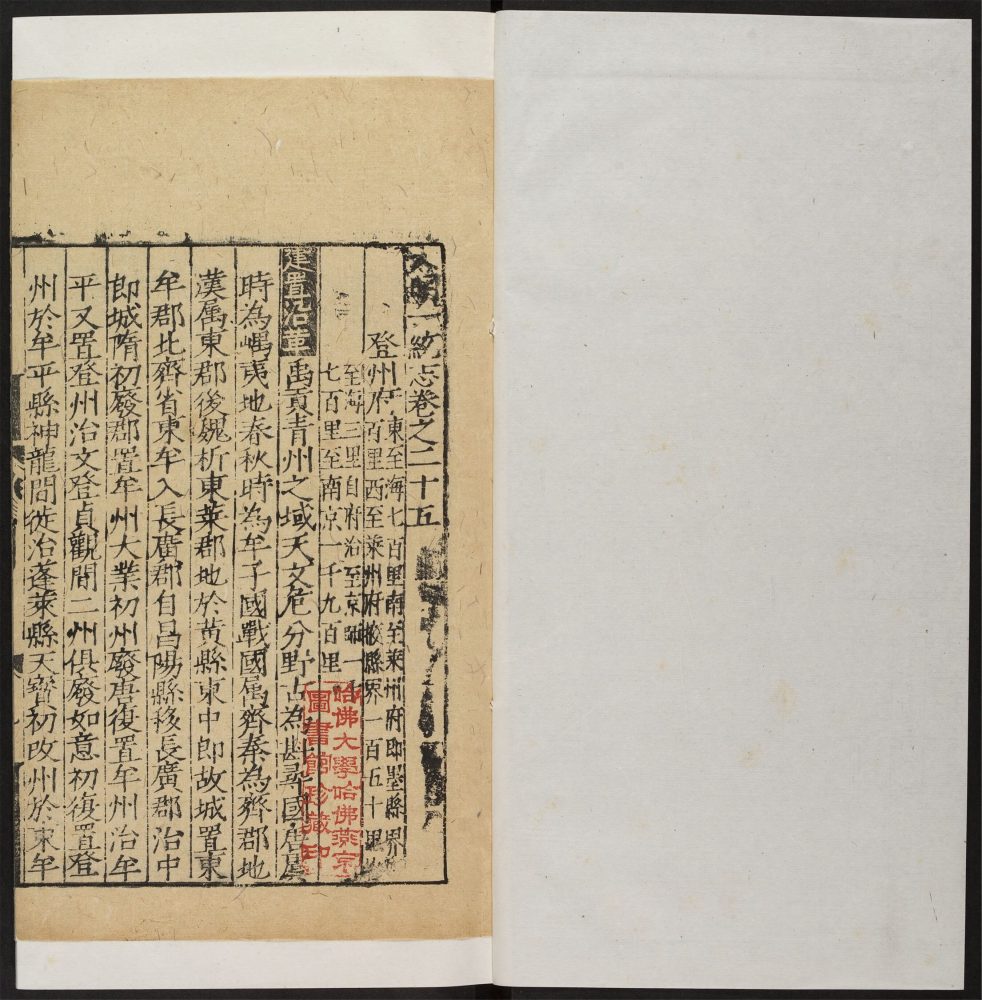 大明一統志卷之二十五
登州府東至海七百里南至萊州府即墨縣界
百里西至萊州府掖縣界一百五十里
至海三里自府治至京師一千
七百里至南京一千九百里
建置沿革禹貢青州之域天文危分野古為斟尋國唐虞
時為嵎夷地春秋時為牟子國戰國属齊秦為齊郡地
漢属東郡後魏析東萊郡地於黃縣東中郎故城置東
牟郡北齊省東牟入長廣郡自昌陽縣移長廣郡治中
郎城隋初廢郡置牟州大業初州廢唐復置牟州治牟
平又置登州治文登貞觀間二州俱廢如意初復置登
州於牟平縣神龍間徙治蓬萊縣天寶初改州於東牟
哈佛大學哈佛燕京
圖書館珍藏印